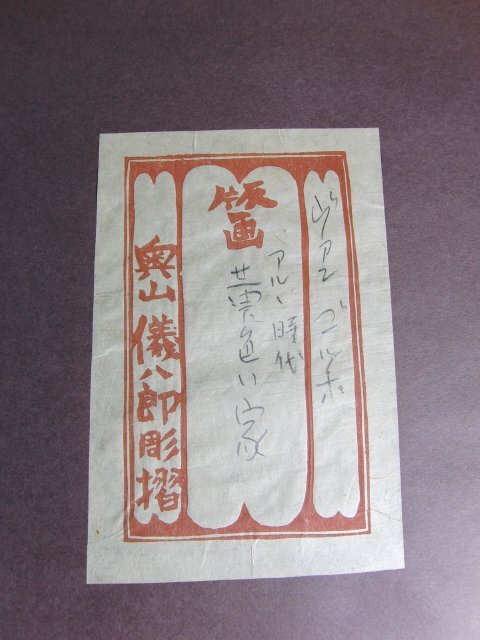 ヴアン ゴルホ
版画
アルヽ時代
黄色い家
奥山儀八郎彫摺